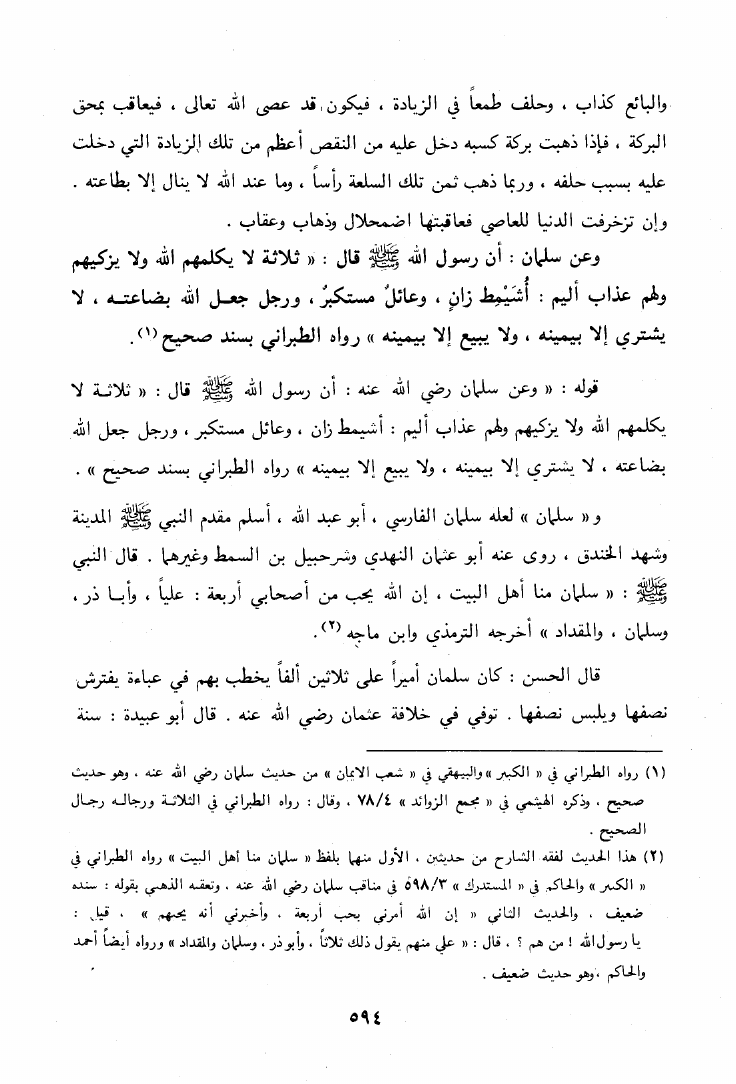 والبائع كذاب ، وحلف طمعاً في الزيادة ، فيكون قد عصى الله تعالى ، فيعاقب بمحق
البركة ، فإذا ذهبت بركة كسبه دخل عليه من النقص أعظم من تلك الزيادة التي دخلت
عليه بسبب حلفه ، وربما ذهب ثمن تلك السلعة رأساً ، وما عند الله لا ينال إلا بطاعته .
وإن تزخرفت الدنيا للعاصي فعاقبتها اضمحلال وذهاب وعقاب .
وعن سلمان : أن رسول الله ﷺ قال : « ثلاثة لا يكلمهم الله ولا يزكيهم
ولهم عذاب أليم : أُشَيْمِط زانٍ ، وعائلٌ مستكبرٌ ، ورجل جعـل الله بضاعتـه ، لا
يشتري إلا بيمينه ، ولا يبيع إلا بيمينه » رواه الطبراني بسند صحيح (١).
قوله : « وعن سلمان رضي الله عنه : أن رسول الله ﷺ قال : « ثلاثـة لا
يكلمهم الله ولا يزكيهم ولهم عذاب أليم : أشيمط زان ، وعائل مستكبر ، ورجل جعل الله
بضاعته ، لا يشتري إلا بيمينه ، ولا يبيع إلا بيمينه » رواه الطبراني بسند صحيح » .
و« سلمان » لعله سلمان الفارسي ، أبو عبد الله ، أسلم مقدم النبي ﷺ المدينة
وشهد الخندق ، روى عنه أبو عثمان النهدي وشرحبيل بن السمط وغيرهما . قال النبي
ﷺ : « سلمان منا أهل البيت ، إن الله يحب من أصحابي أربعة : علياً ، وأبـا ذر ،
وسلمان ، والمقداد » أخرجه الترمذي وابن ماجه (٢).
قال الحسن : كان سلمان أميراً على ثلاثين ألفاً يخطب بهم في عباءة يفترش
نصفها ويلبس نصفها . توفي في خلافة عثمان رضي الله عنه . قال أبو عبيدة : سنة
(١) رواه الطبراني في « الكبير » والبيهقي في « شعب الايمان » من حديث سلمان رضي الله عنه ، وهو حديث
صحيح ، وذكره الهيثمي في « مجمع الزوائد » ٧٨/٤ ، وقال : رواه الطبراني في الثلاثـة ورجالـه رجـال
الصحيح .
(٢) هذا الحديث لفقه الشارح من حديثين ، الأول منهما بلفظ « سلمان منا أهل البيت » رواه الطبراني في
« الكبير » والحاكم في « المستدرك » ٥٩٨/٣ في مناقب سلمان رضي الله عنه ، وتعقبه الذهبي بقوله : سنده
ضعيف ، والحديث الثاني « إن الله أمرني بحب أربعة ، وأخبرني أنه يحبهم » ، قيل :
يا رسول الله ! من هم ؟ ، قال : « علي منهم يقول ذلك ثلاثاً ، وأبو ذر ، وسلمان والمقداد » ورواه أيضاً أحمد
والحاكم ، وهو حديث ضعيف .
٥٩٤